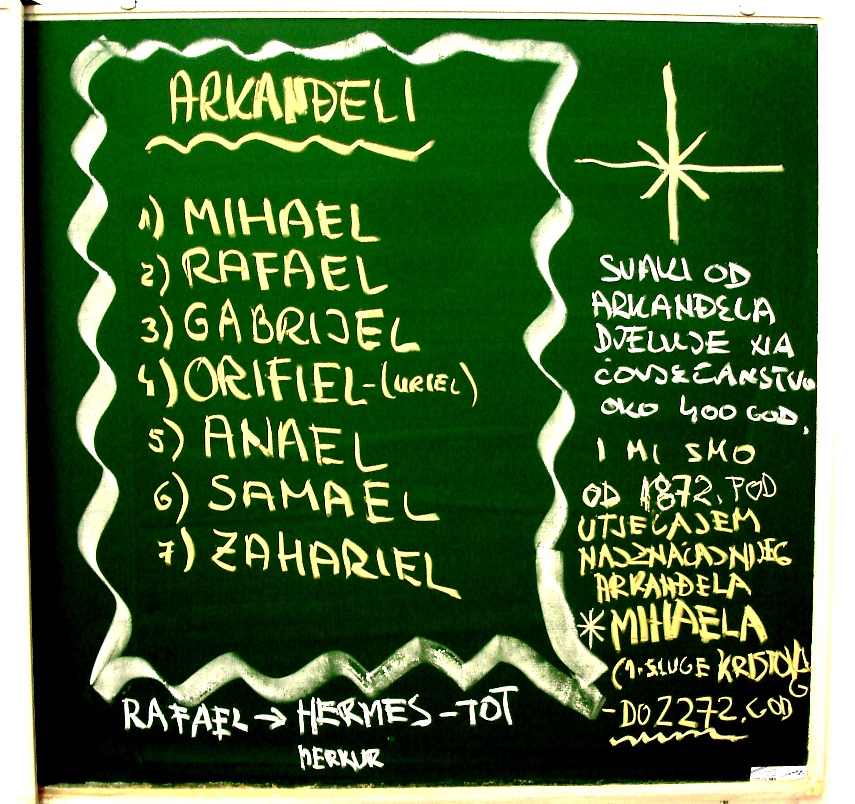 ARKANĐELI
1) MIHAEL
2) RAFAEL
3) GABRIJEL
4) ORIFIEL-(URIEL)
5) ANAEL
6) SAMAEL
7) ZAHARIEL
RAFAEL → HERMES-TOT
MERKUR
SVAKI OD
ARKANĐELA
DJELUJE NA
ČOVJEČANSTVU
OKO 400 GOD.
I MI SMO
OD 1872. POD
UTJECAJEM
NAJZNAČAJNIJEG
ARKANĐELA
* MIHAELA
(1. SLUGE KRISTOVOG
- DO 2272. GOD